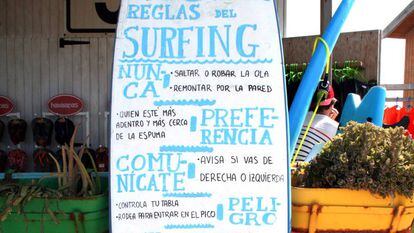 REGLAS DEL
SURFING
NUNCA
• SALTAR O ROBAR LA OLA
• REMONTAR POR LA PARED
• QUIEN ESTE MÁS
ADENTRO Y MAS CERCA
DE LA ESPUMA
PREFERENCIA
COMUNÍCATE
• AVISA SI VAS DE
DERECHA O IZQUIERDA
• CONTROLA TU TABLA
• RODEA PARA ENTRAR EN EL PICO
PELIGRO